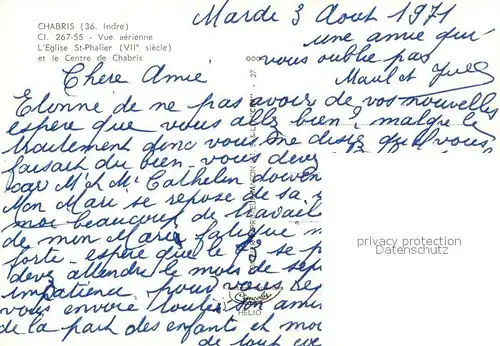 CHABRIS (36. Indre)
Cl. 267-55 - Vue aérienne
L'Eglise St-Phalier (VIIe siècle)
et le Centre de Chabris
Mardi 3 Aout 1971
une amie qui
vous oublie pas
Chere Amie
Etonne de ne pas avoir de vos nouvelles
espere que vous allez bien? malgre le
traitement donc vous me disez qu'il vous
faisait du bien. vous deve
car Mr et Me Cathelin doive
Mon Mari se repose de sa
moi beaucoup de travail
de mon Marie fatigue
forte. espere que le se p
deve attendre le mois de sep
impatience pour vous
vous envoie toutes son ami
de la part des enfants et moi
de tout
privacy protection
Datenschutz
HELIO